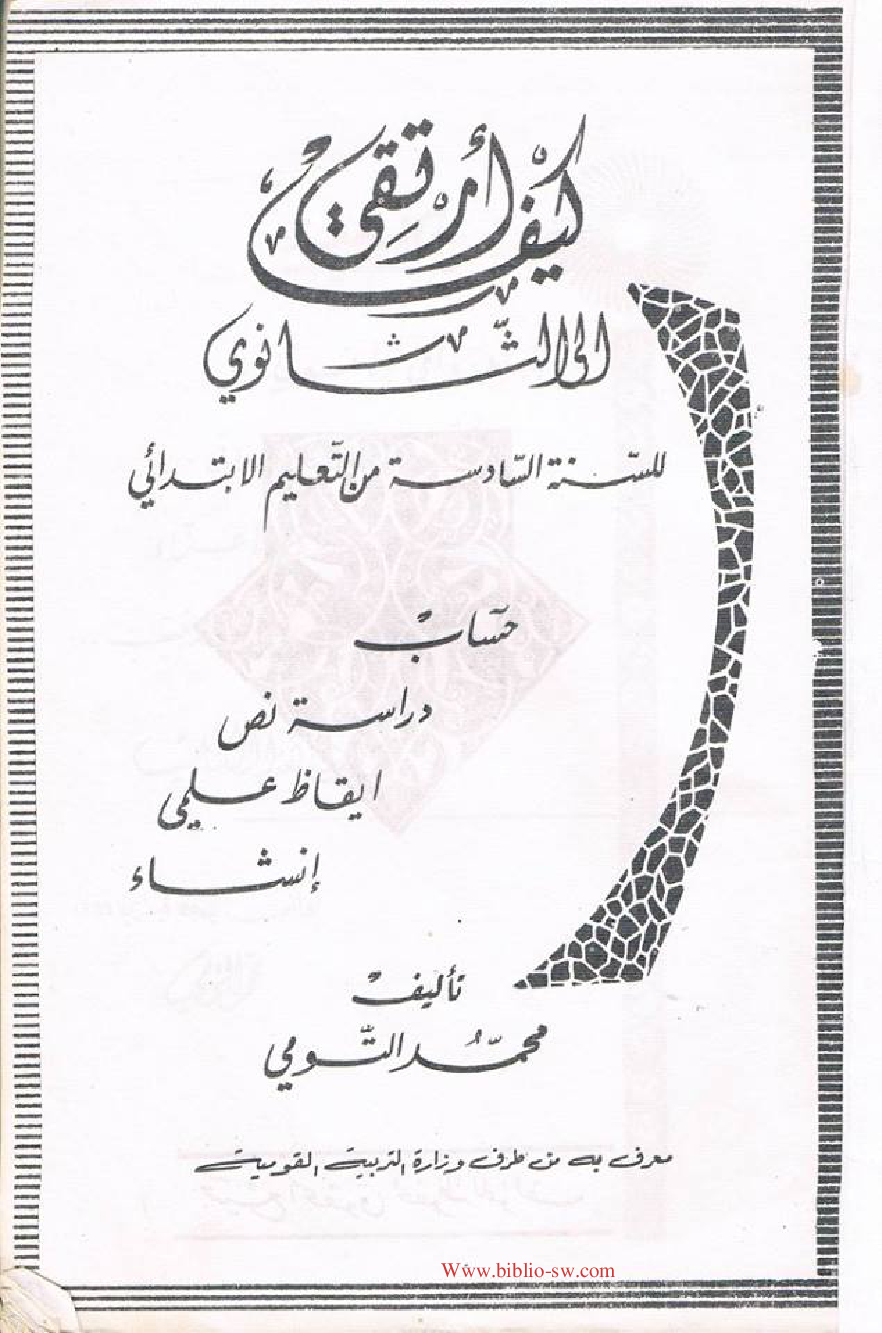 كيف أرتقي
الى الثّانوي
للسّنة السّادسة من التّعليم الابتدائي
حساب
دراسة نص
ايقاظ علمي
إنشاء
تأليف
محمّد التّومي
معرف به من طرف وزارة التربية القومية
Www.biblio-sw.com